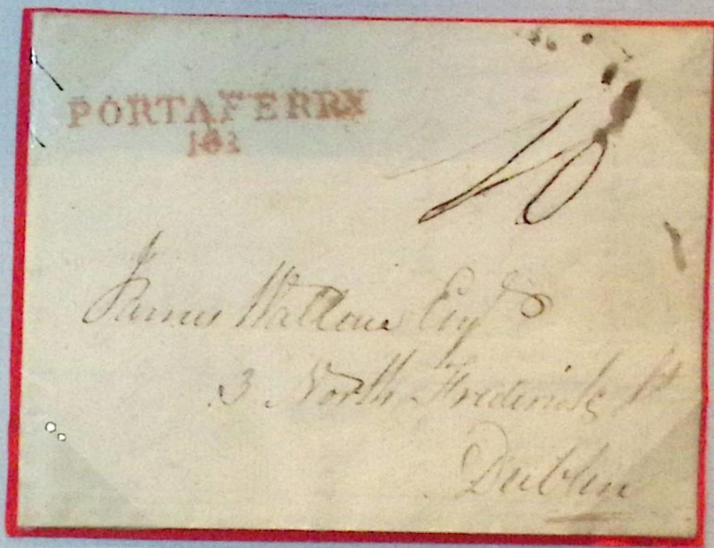 PORTAFERRY
101
10
James Wallace Esqr
3 North Frederick St
Dublin